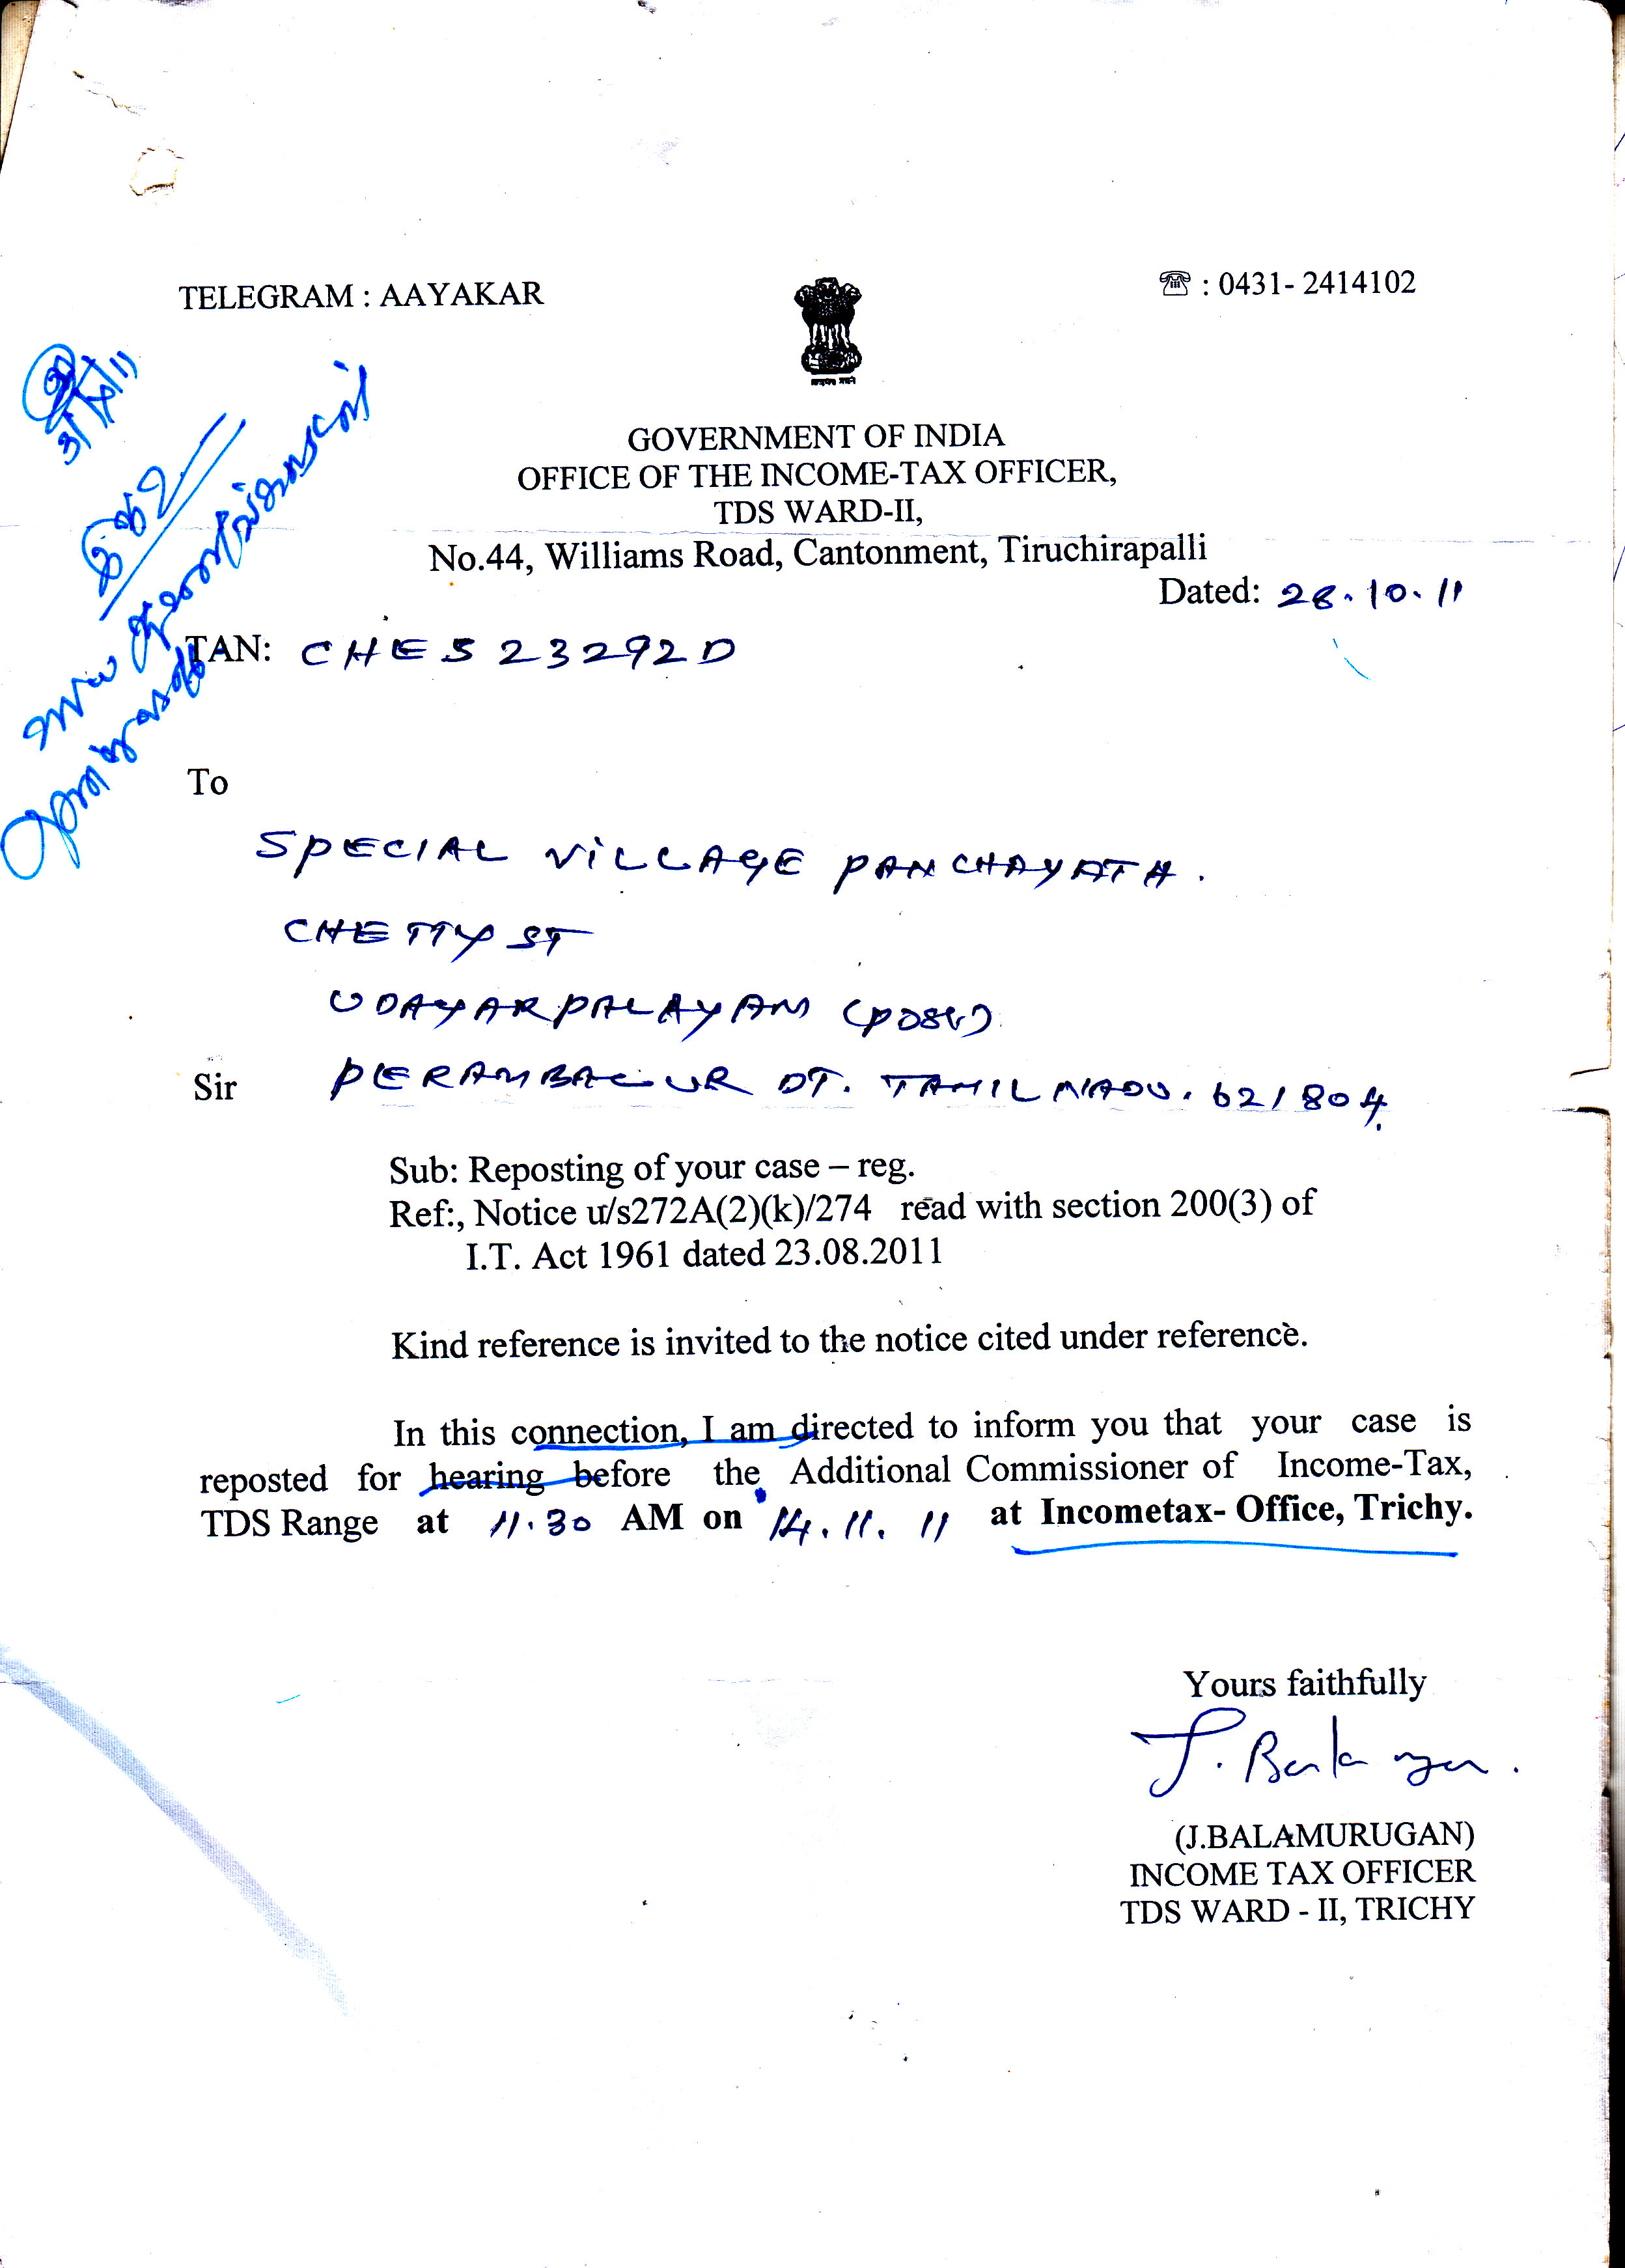 TELEGRAM : AAYAKAR
☎ : 0431- 2414102
GOVERNMENT OF INDIA
OFFICE OF THE INCOME-TAX OFFICER,
TDS WARD-II,
No.44, Williams Road, Cantonment, Tiruchirapalli
Dated: 28.10.11
TAN: CHES23292D
To
SPECIAL VILLAGE PANCHAYATH.
CHETTY ST
UDAYARPALAYAM (POST)
Sir PERAMBALUR DT. TAMIL NADU. 621804.
Sub: Reposting of your case – reg.
Ref:, Notice u/s272A(2)(k)/274 read with section 200(3) of
I.T. Act 1961 dated 23.08.2011
Kind reference is invited to the notice cited under reference.
In this connection, I am directed to inform you that your case is
reposted for hearing before the Additional Commissioner of Income-Tax,
TDS Range at 11.30 AM on 14.11.11 at Incometax- Office, Trichy.
Yours faithfully
(J.BALAMURUGAN)
INCOME TAX OFFICER
TDS WARD - II, TRICHY